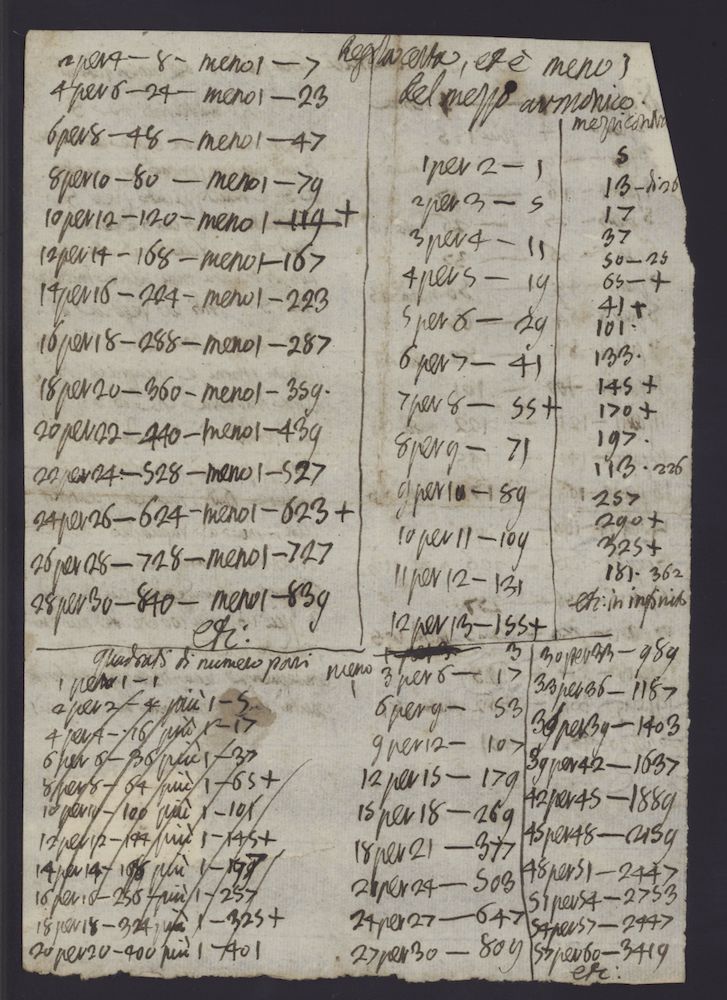 2 per 4 – 8 – meno 1 – 7
4 per 6 – 24 – meno 1 – 23
6 per 8 – 48 – meno 1 – 47
8 per 10 – 80 – meno 1 – 79
10 per 12 – 120 – meno 1 – 119 +
12 per 14 – 168 – meno 1 – 167
14 per 16 – 224 – meno 1 – 223
16 per 18 – 288 – meno 1 – 287
18 per 20 – 360 – meno 1 – 359.
20 per 22 – 440 – meno 1 – 439
22 per 24 – 528 – meno 1 – 527
24 per 26 – 624 – meno 1 – 623 +
26 per 28 – 728 – meno 1 – 727
28 per 30 – 840 – meno 1 – 839
etc:
Regola certa, et è meno 1
del mezzo armonico.
1 per 2 – 1
2 per 3 – 5
3 per 4 – 11
4 per 5 – 19
5 per 6 – 29
6 per 7 – 41
7 per 8 – 55 +
8 per 9 – 71
9 per 10 – 89
10 per 11 – 109
11 per 12 – 131
12 per 13 – 155 +
mezzi
5
13 – di 26
17
37
50 – 25
65 – +
41 +
101.
133.
145 +
170 +
197.
113. 226
257
290 +
325 +
181. 362
etc: in infinito
quadrati di numero pari
1 per 1 – 1
2 per 2 – 4 più 1 – 5
4 per 4 – 16 più 1 – 17
6 per 6 – 36 più 1 – 37
8 per 8 – 64 più 1 – 65 +
10 per 10 – 100 più 1 – 101
12 per 12 – 144 più 1 – 145 +
14 per 14 – 196 più 1 – 197
16 per 16 – 256 più 1 – 257
18 per 18 – 324 più 1 – 325 +
20 per 20 – 400 più 1 – 401
meno 1
3
3 per 6 – 17
6 per 9 – 53
9 per 12 – 107
12 per 15 – 179
15 per 18 – 269
18 per 21 – 377
21 per 24 – 503
24 per 27 – 647
27 per 30 – 809
30 per 33 – 989
33 per 36 – 1187
36 per 39 – 1403
39 per 42 – 1637
42 per 45 – 1889
45 per 48 – 2159
48 per 51 – 2447
51 per 54 – 2753
54 per 57 – 2447
57 per 60 – 3419
etc: